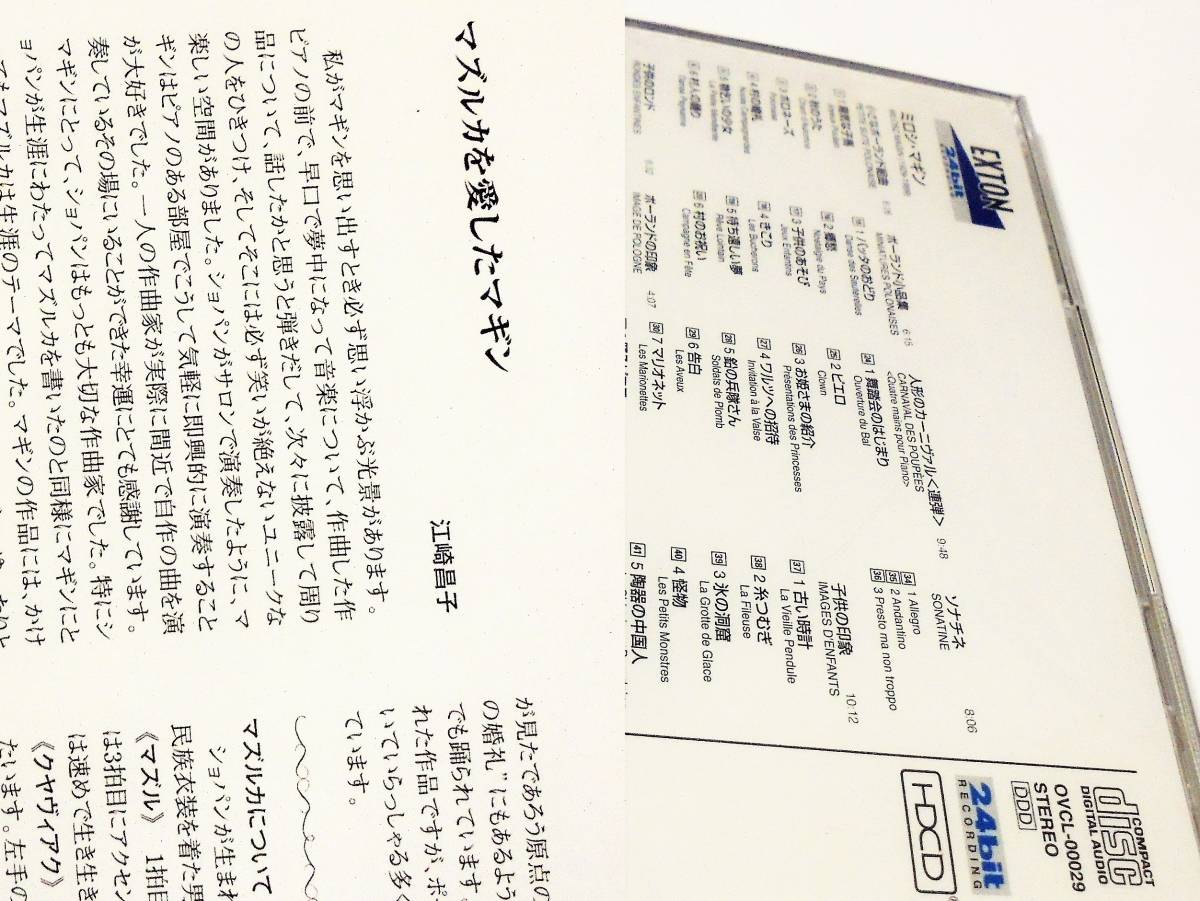 マズルカを愛したマギン
江崎昌子
私がマギンを思い出すとき必ず思い浮かぶ光景があります。
ピアノの前で、早口で夢中になって音楽について、作曲した作
品について、話したかと思うと弾きだして、次々に披露して周り
の人をひきつけ、そしてそこには必ず笑いが絶えないユニークな
楽しい空間がありました。ショパンがサロンで演奏したように、マ
ギンはピアノのある部屋でこうして気軽に即興的に演奏すること
が大好きでした。一人の作曲家が実際に間近で自作の曲を演
奏しているその場にいることができた幸運にとても感謝しています。
マギンにとって、ショパンはもっとも大切な作曲家でした。特にシ
ョパンが生涯にわたってマズルカを書いたのと同様にマギンにと
てもマズルカは生涯のテーマでした。マギンの作品には、かけ
が見たであろう原点の
の婚礼”にもあるよう
でも踊られています
れた作品ですが、ポー
いていらっしゃる多く
ています。
マズルカについて
ショパンが生まれ
民族衣装を着た男
《マズル》 1拍目
は3拍目にアクセン
は速めで生き生き
《クヤヴィアク》
たいます。左手の
EXTON
24bit
ミロシ・マギン
ポーランド小品集 6:15
MINIATURES POLONAISES
1 バッタのおどり
Danse des Sauterelles
2 郷愁
Nostalgie du Pays
3 子供のあそび
Jeux Enfantins
4 きこり
Les Bucherons
5 待ち遠しい夢
Rêve Lointain
6 村のお祝い
Campagne en Fête
ポーランドの印象 4:07
IMAGE DE POLOGNE
子供のロンド
RONDES ENFANTINES
人形のカーニヴァル<連弾> 9:48
CARNAVAL DES POUPÉES
<Quatre mains pour Piano>
24 1 舞踏会のはじまり
Ouverture du Bal
25 2 ピエロ
Clown
26 3 お姫さまの紹介
Présentations des Princesses
27 4 ワルツへの招待
Invitation à la Valse
28 5 鉛の兵隊さん
Soldats de Plomb
29 6 告白
Les Aveux
30 7 マリオネット
Les Marionettes
ソナチネ 8:06
SONATINE
34 1 Allegro
35 2 Andantino
36 3 Presto ma non troppo
子供の印象 10:12
IMAGES D'ENFANTS
37 1 古い時計
La Vieille Pendule
38 2 糸つむぎ
La Fileuse
39 3 氷の洞窟
La Grotte de Glace
40 4 怪物
Les Petits Monstres
41 5 陶器の中国人
COMPACT
disc
DIGITAL AUDIO
OVCL-00029
STEREO
DDD
24bit
RECORDING
HDCD